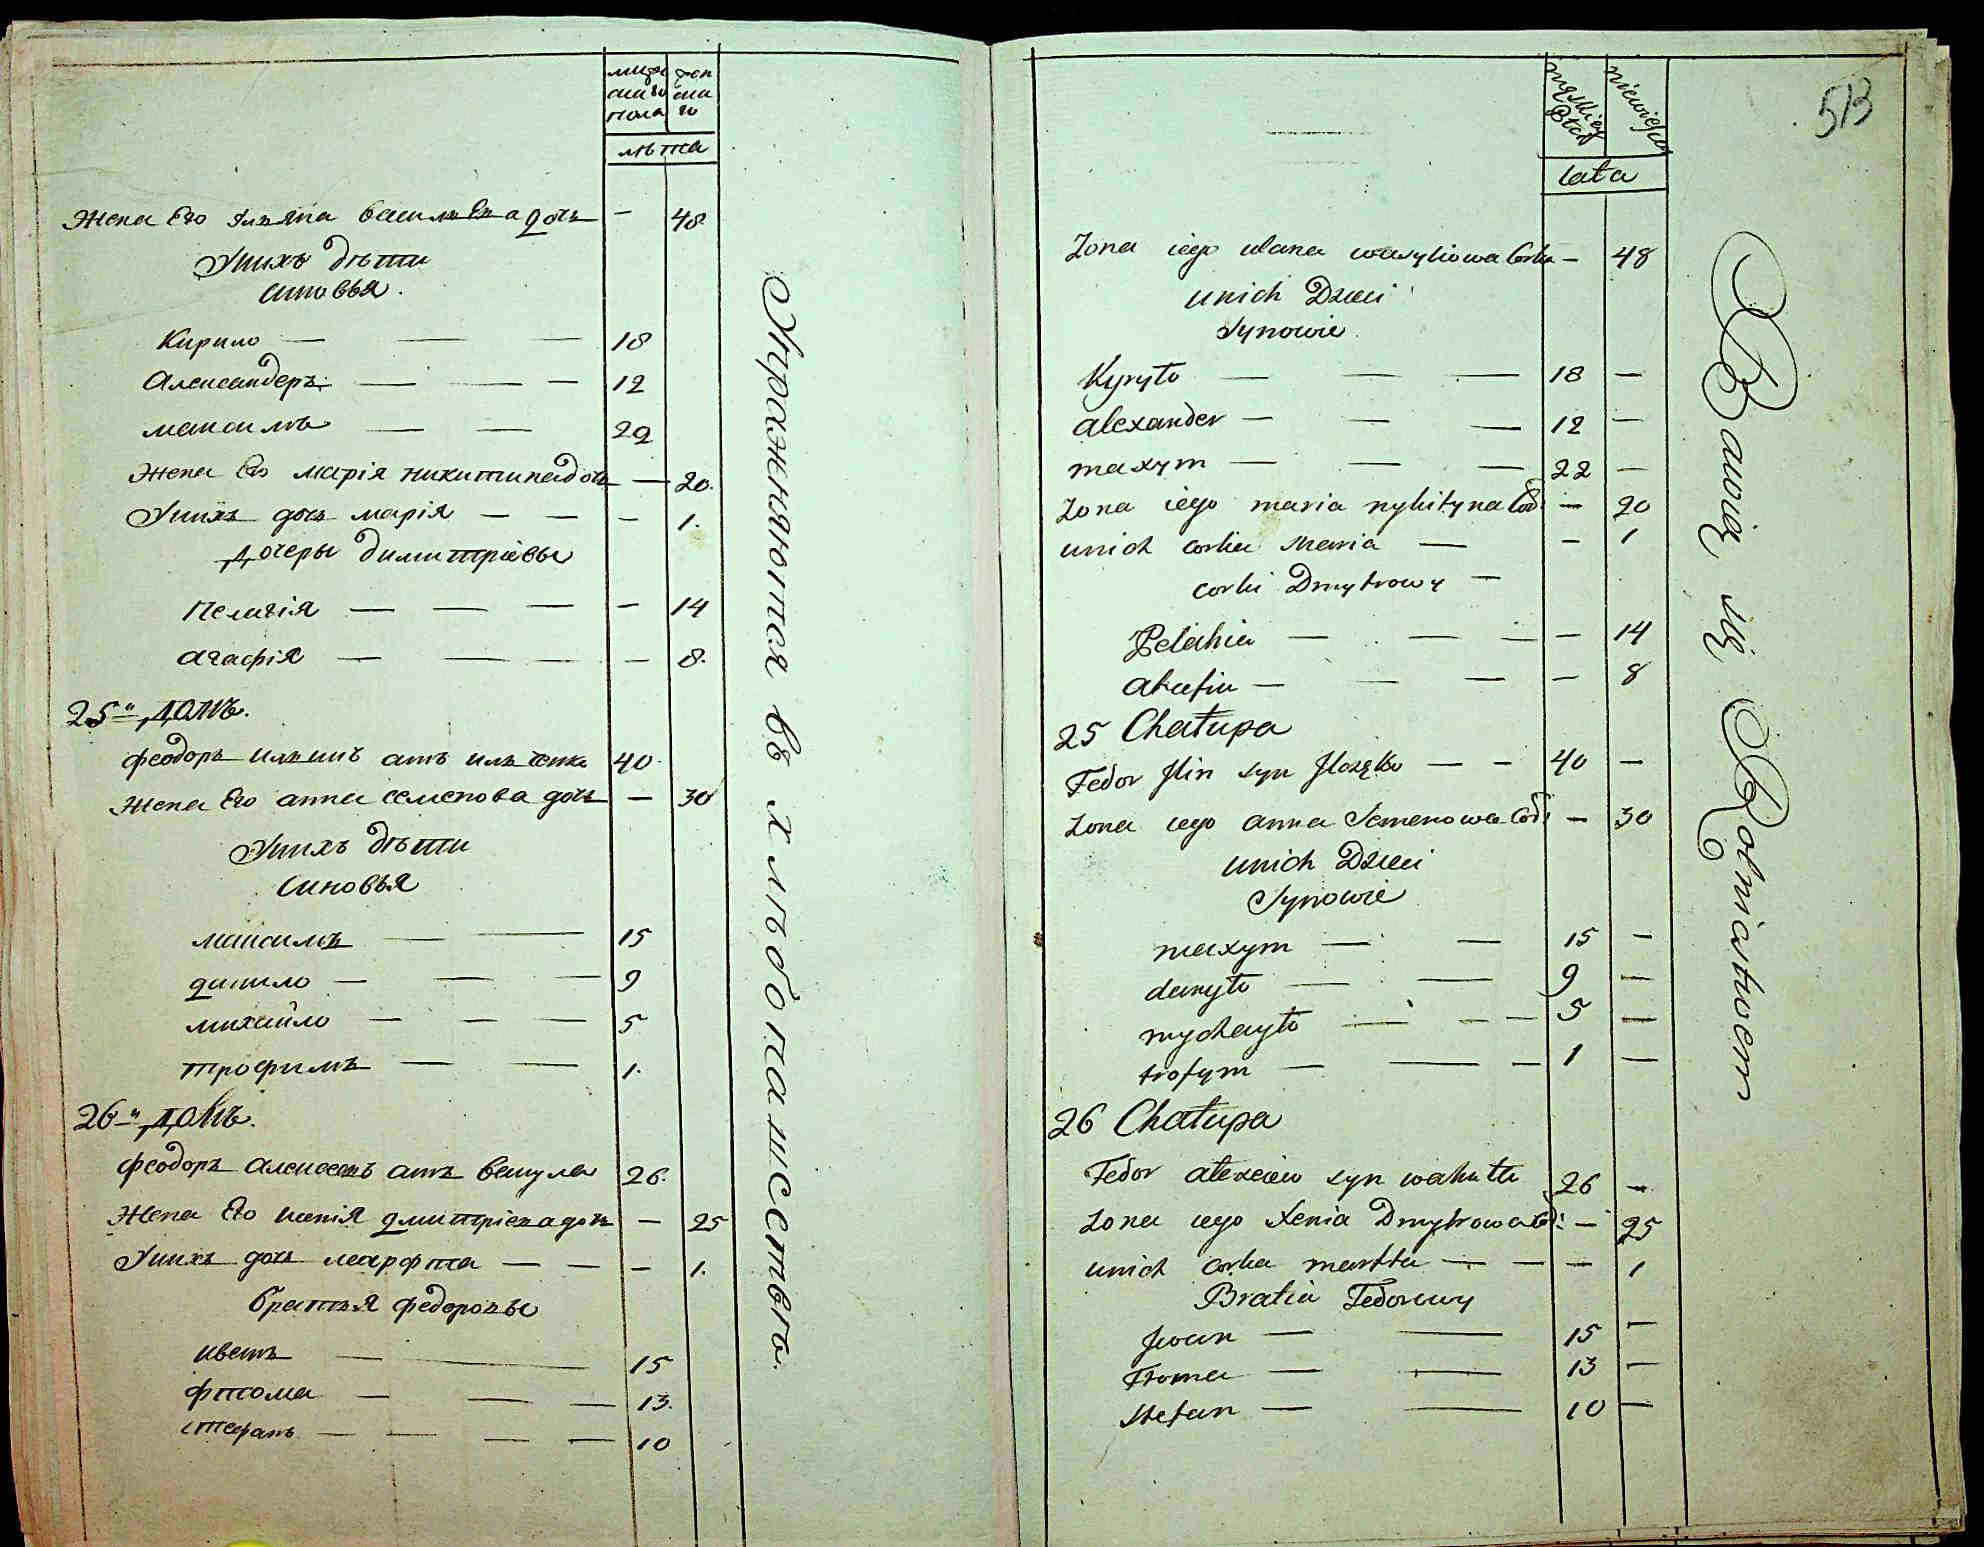 мужескаго пола
женскаго
лѣта
Жена Его Улѣяна василѣева дочь — 48.
У нихъ дѣти
синовья.
Кирило — — — 18
Александеръ — — — 12
максимъ — — 22
Жена Его марія никитина дочь — 20.
У нихъ дочь марія — — — 1.
Дочеры димитріевы
Пелагія — — — — 14
агафія — — — — 8.
25-й Домъ.
феодоръ илѣинъ сынъ 40.
Жена Его анна семенова дочь — 30
У нихъ дѣти
Синовья
максимъ — — 15
данило — — — 9
михайло — — — 5
трофимъ — — 1.
26-й Домъ.
феодоръ алексеевъ сынъ вакула 26.
Жена Его ксенія дмитріева дочь — 25
У нихъ дочь марфта — — — 1.
братья федоровы
иванъ — — 15
фтома — — — 13.
стефанъ — — — — 10
Упражняются въ хлѣбопашествѣ.
513
męskiey Płci
niewieściey
lata
Zona iego ulana wasyliowa Corka — 48
unich Dzieci
Synowie
Kyryło — — — 18 —
alexander — — — 12 —
maxym — — — 22 —
Zona iego maria nykityna Cór: — 20
unich corka Maria — — 1
corki Dmytrowy —
Pelahia — — — — 14
ahafia — — — — 8
25 Chałupa
Fedor Jlin syn — — 40 —
Zona iego anna Semenowa Cór: — 30
unich Dzieci
Synowie
maxym — — 15 —
danyło — — 9 —
mychayło — — — 5 —
trofym — — — 1 —
26 Chałupa
Fedor alexeiew syn wakuła 26 —
Zona iego Xenia Dmytrowa Cór: — 25
unich Corka martta — — — 1
Bratia Fedorowy
Jwan — — 15 —
Ftoma — — 13 —
Stefan — — 10 —
Bawią się Rolniastwem